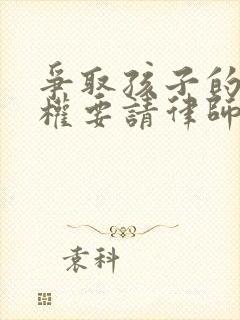 爭取孩子的
權要請律師
袁科